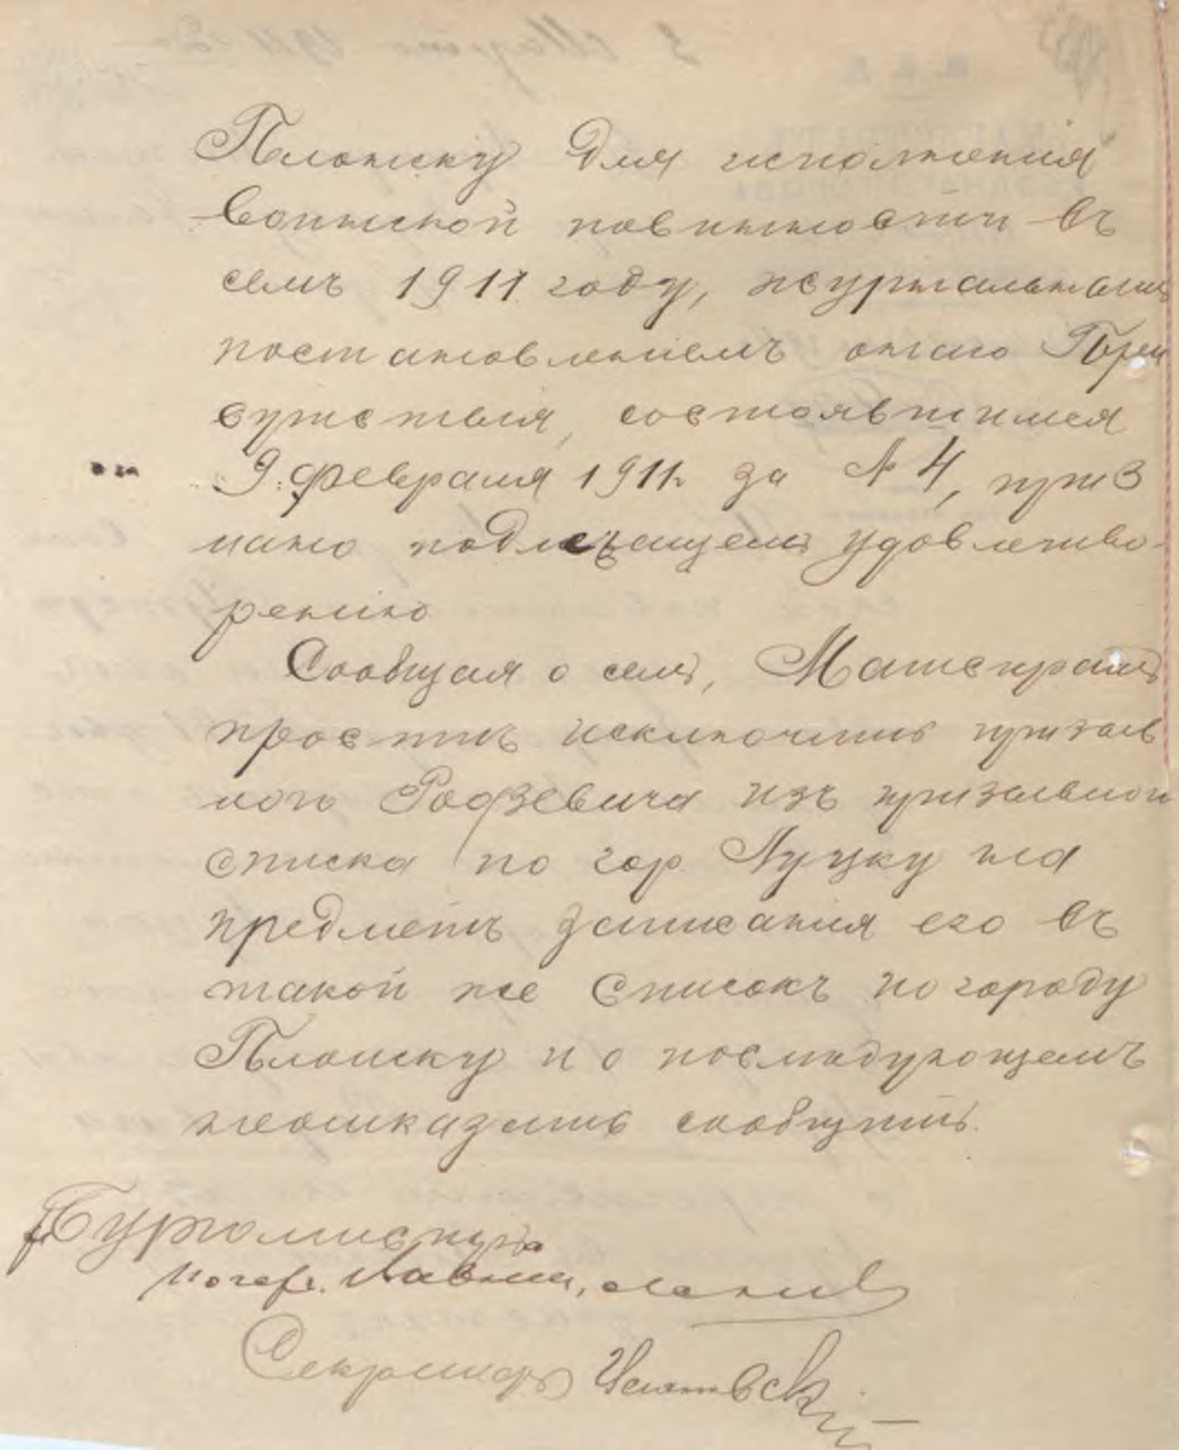 Плонску для исполненія
воинской повинности въ
семъ 1911 году, журнальнымъ
постановленіемъ онаго При
сутствія, состоявшимся
9 февраля 1911 г. за № 4, приз
нано подлежащемъ удовлетво-
ренію
Сообщая о семъ, Магистратъ
проситъ исключить призыв
ного Родзевича изъ призывного
списка по гор. Луцку на
предметъ записанія его въ
такой же списокъ по городу
Плонску и о послѣдующемъ
неотказать сообщить.
Бургомистръ
Секретарь